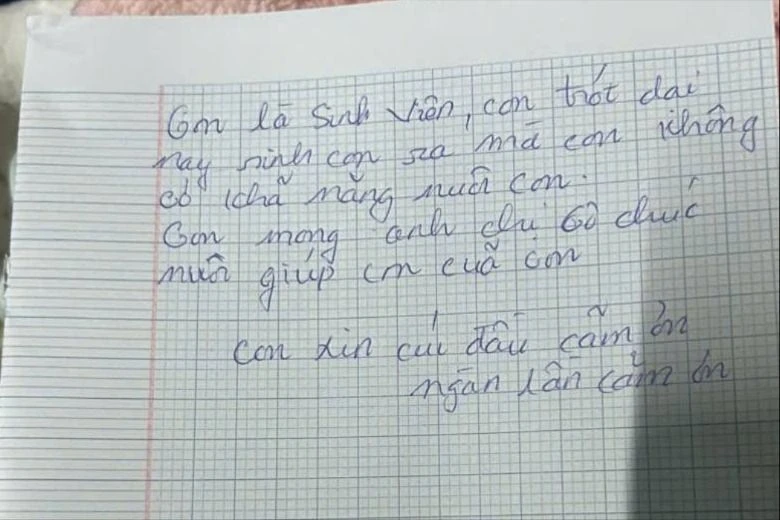 Con là sinh viên, con trót dại
nay sinh con ra mà con không
có khả năng nuôi con.
Con mong anh chị cô chú
nuôi giúp con của con
con xin cúi đầu cảm ơn
ngàn lần cảm ơn